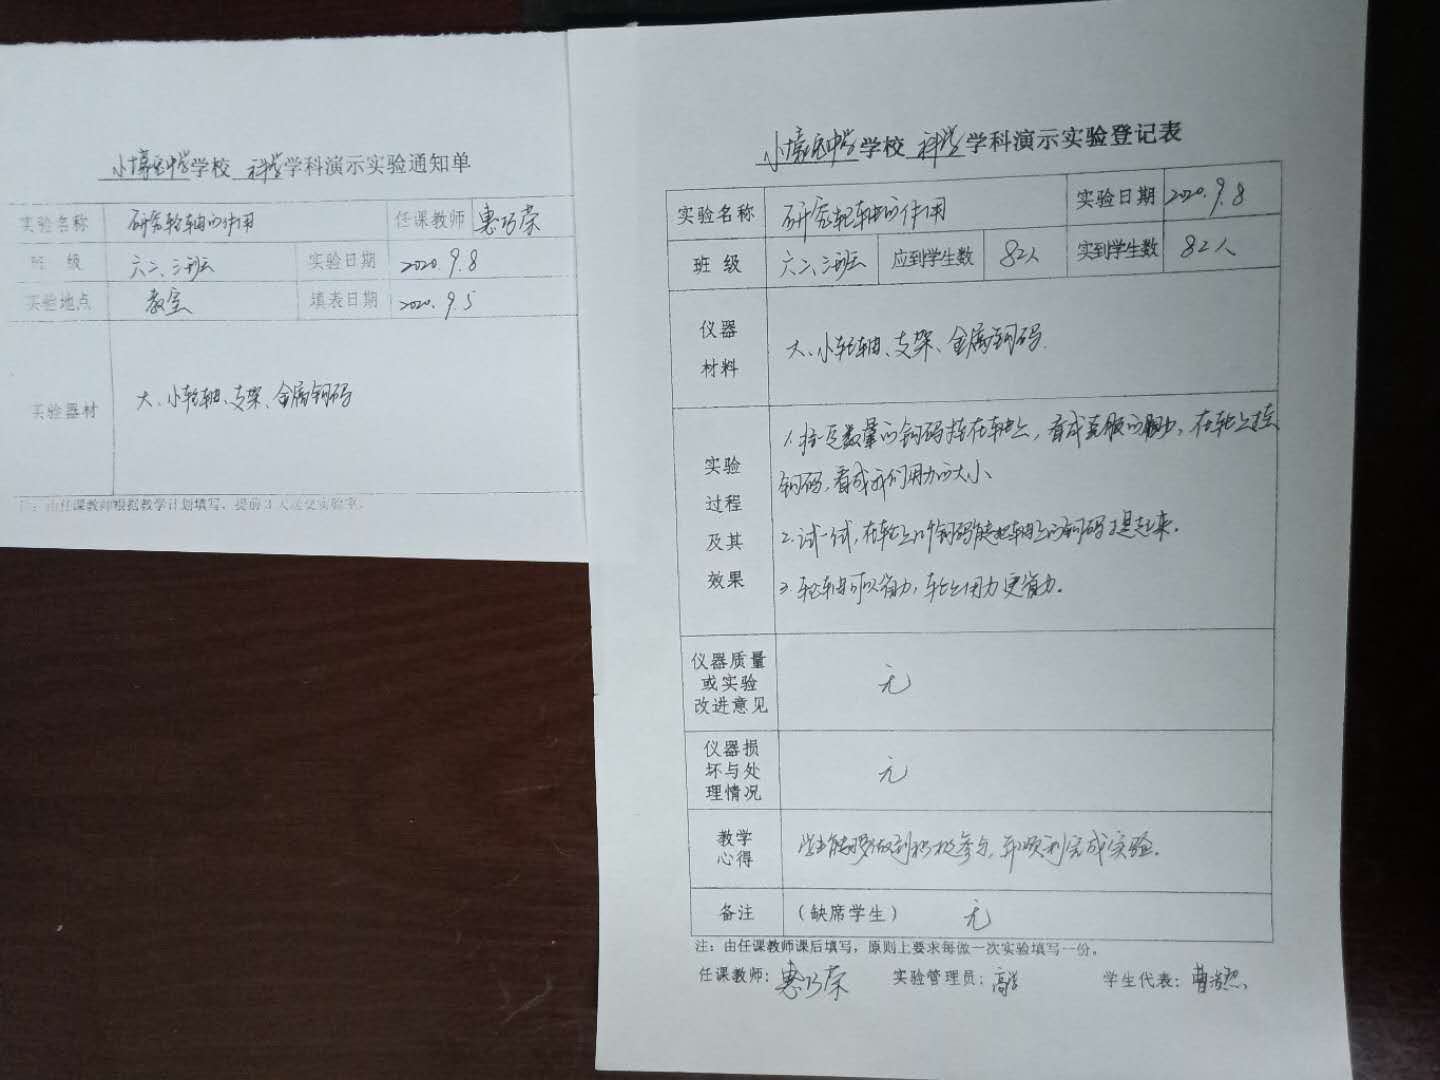 学校 科学学科演示实验通知单
实验名称 研究轮轴的作用 任课教师 惠巧荣
班 级 六二、三班 实验日期 2020.9.8
实验地点 教室 填表日期 2020.9.5
实验器材 大、小轮轴、支架、金属钩码
注：由任课教师根据教学计划填写，提前3天送交实验室。
学校 科学学科演示实验登记表
实验名称 研究轮轴的作用 实验日期 2020.9.8
班 级 六二、三班 应到学生数 82人 实到学生数 82人
仪器
材料
大、小轮轴、支架、金属钩码.
实验
过程
及其
效果
1.将一定数量的钩码挂在轴上，看成克服的阻力，在轮上挂
钩码，看成我们用力的大小
2.试一试，在轮上几个钩码能把轴上的钩码提起来。
3.轮轴可以省力，轮上用力更省力。
仪器质量
或实验
改进意见
无
仪器损
坏与处
理情况
无
教学
心得
学生能够做到积极参与，并顺利完成实验。
备注 （缺席学生） 无
注：由任课教师课后填写，原则上要求每做一次实验填写一份。
任课教师：惠巧荣 实验管理员： 学生代表：曹